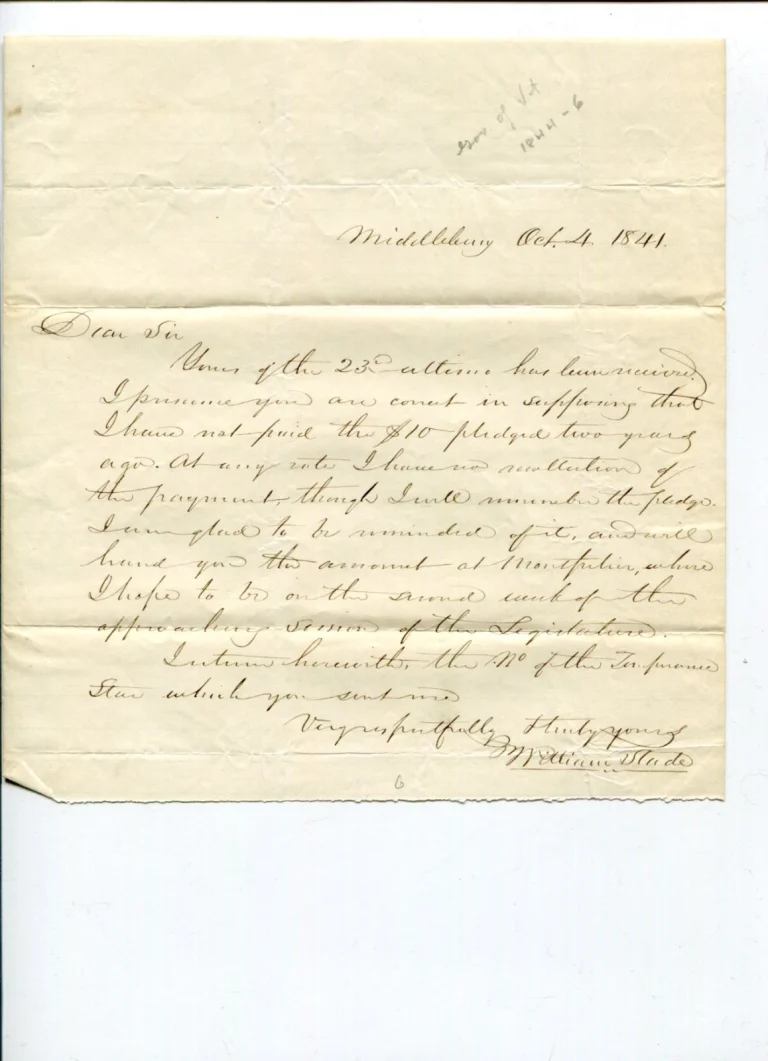 Gov of Vt
1844-6
Middlebury Oct. 4. 1841.
Dear Sir
Yours of the 23d ultimo has been received.
I presume you are correct in supposing that
I have not paid the $10 pledged two years
ago. At any rate I have no recollection of
the payment, though I well remember the pledge.
I am glad to be reminded of it, and will
hand you the amount at Montpelier, where
I hope to be on the second week of the
approaching session of the Legislature.
I return herewith, the No of the Temperance
Star which you sent me
Very respectfully & truly yours
William Slade
6